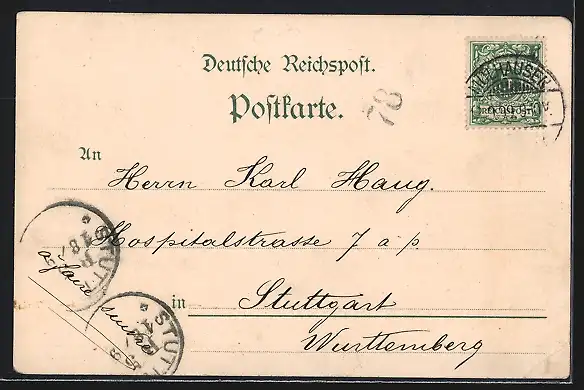 Deutsche Reichspost.
Postkarte.
78
An
Herrn Karl Haug.
Hospitalstrasse 7 a p
in Stuttgart
Württemberg
a faire suivre
STUTT
STUTT